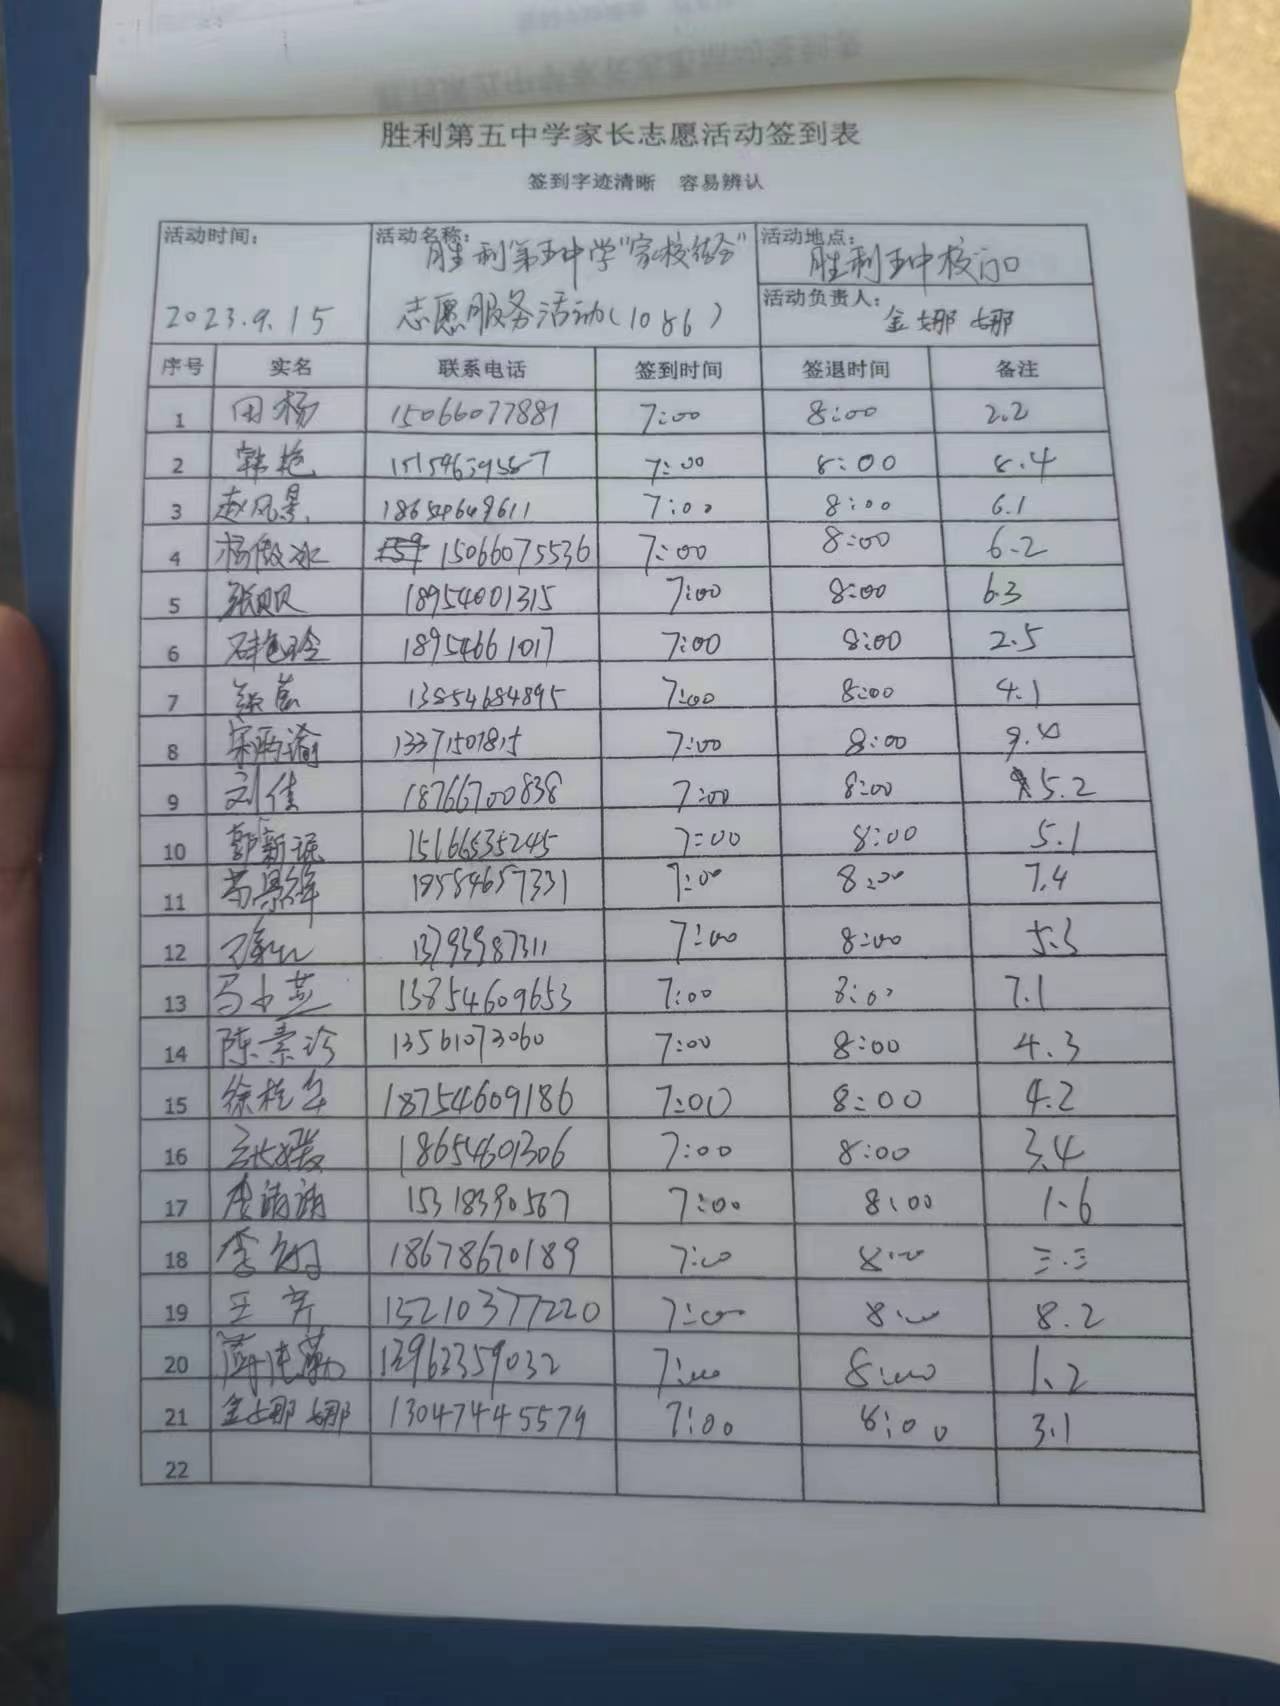 胜利第五中学家长志愿活动签到表
签到字迹清晰 容易辨认
活动时间: 2023.9.15
活动名称: 胜利第五中学"家校结合"
志愿服务活动(1086)
活动地点: 胜利五中校门口
活动负责人: 金娜娜
序号 实名 联系电话 签到时间 签退时间 备注
1 田杨 15066077881 7:00 8:00 2.2
2 韩艳 7:00 8:00 8.4
3 赵风景 18654649611 7:00 8:00 6.1
4 杨傲冰 15066075536 7:00 8:00 6.2
5 张贝贝 18954001315 7:00 8:00 6.3
6 石艳玲 18954661017 7:00 8:00 2.5
7 13854684895 7:00 8:00 4.1
8 13371501815 7:00 8:00 9.4
9 刘佳 18766700838 7:00 8:00 5.2
10 郭新 15166535245 7:00 8:00 5.1
11 7:00 8:00 7.4
12 13793987311 7:00 8:00 5.3
13 马小燕 13854609653 7:00 8:00 7.1
14 陈素珍 13561073060 7:00 8:00 4.3
15 徐桂华 18754609186 7:00 8:00 4.2
16 18654601306 7:00 8:00 3.4
17 李靖靖 15318390567 7:00 8:00 1.6
18 李 18678670189 7:00 8:00 三.三
19 王齐 15210377220 7:00 8:00 8.2
20 13963359032 7:00 8:00 1.2
21 金娜娜 13047445579 7:00 8:00 3.1
22